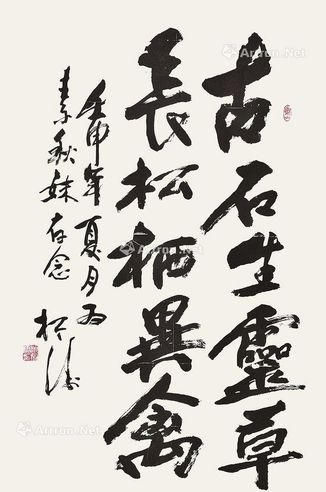 古石生靈草
長松栖異禽
壬申年夏月為
素秋妹存念
Artron.Net